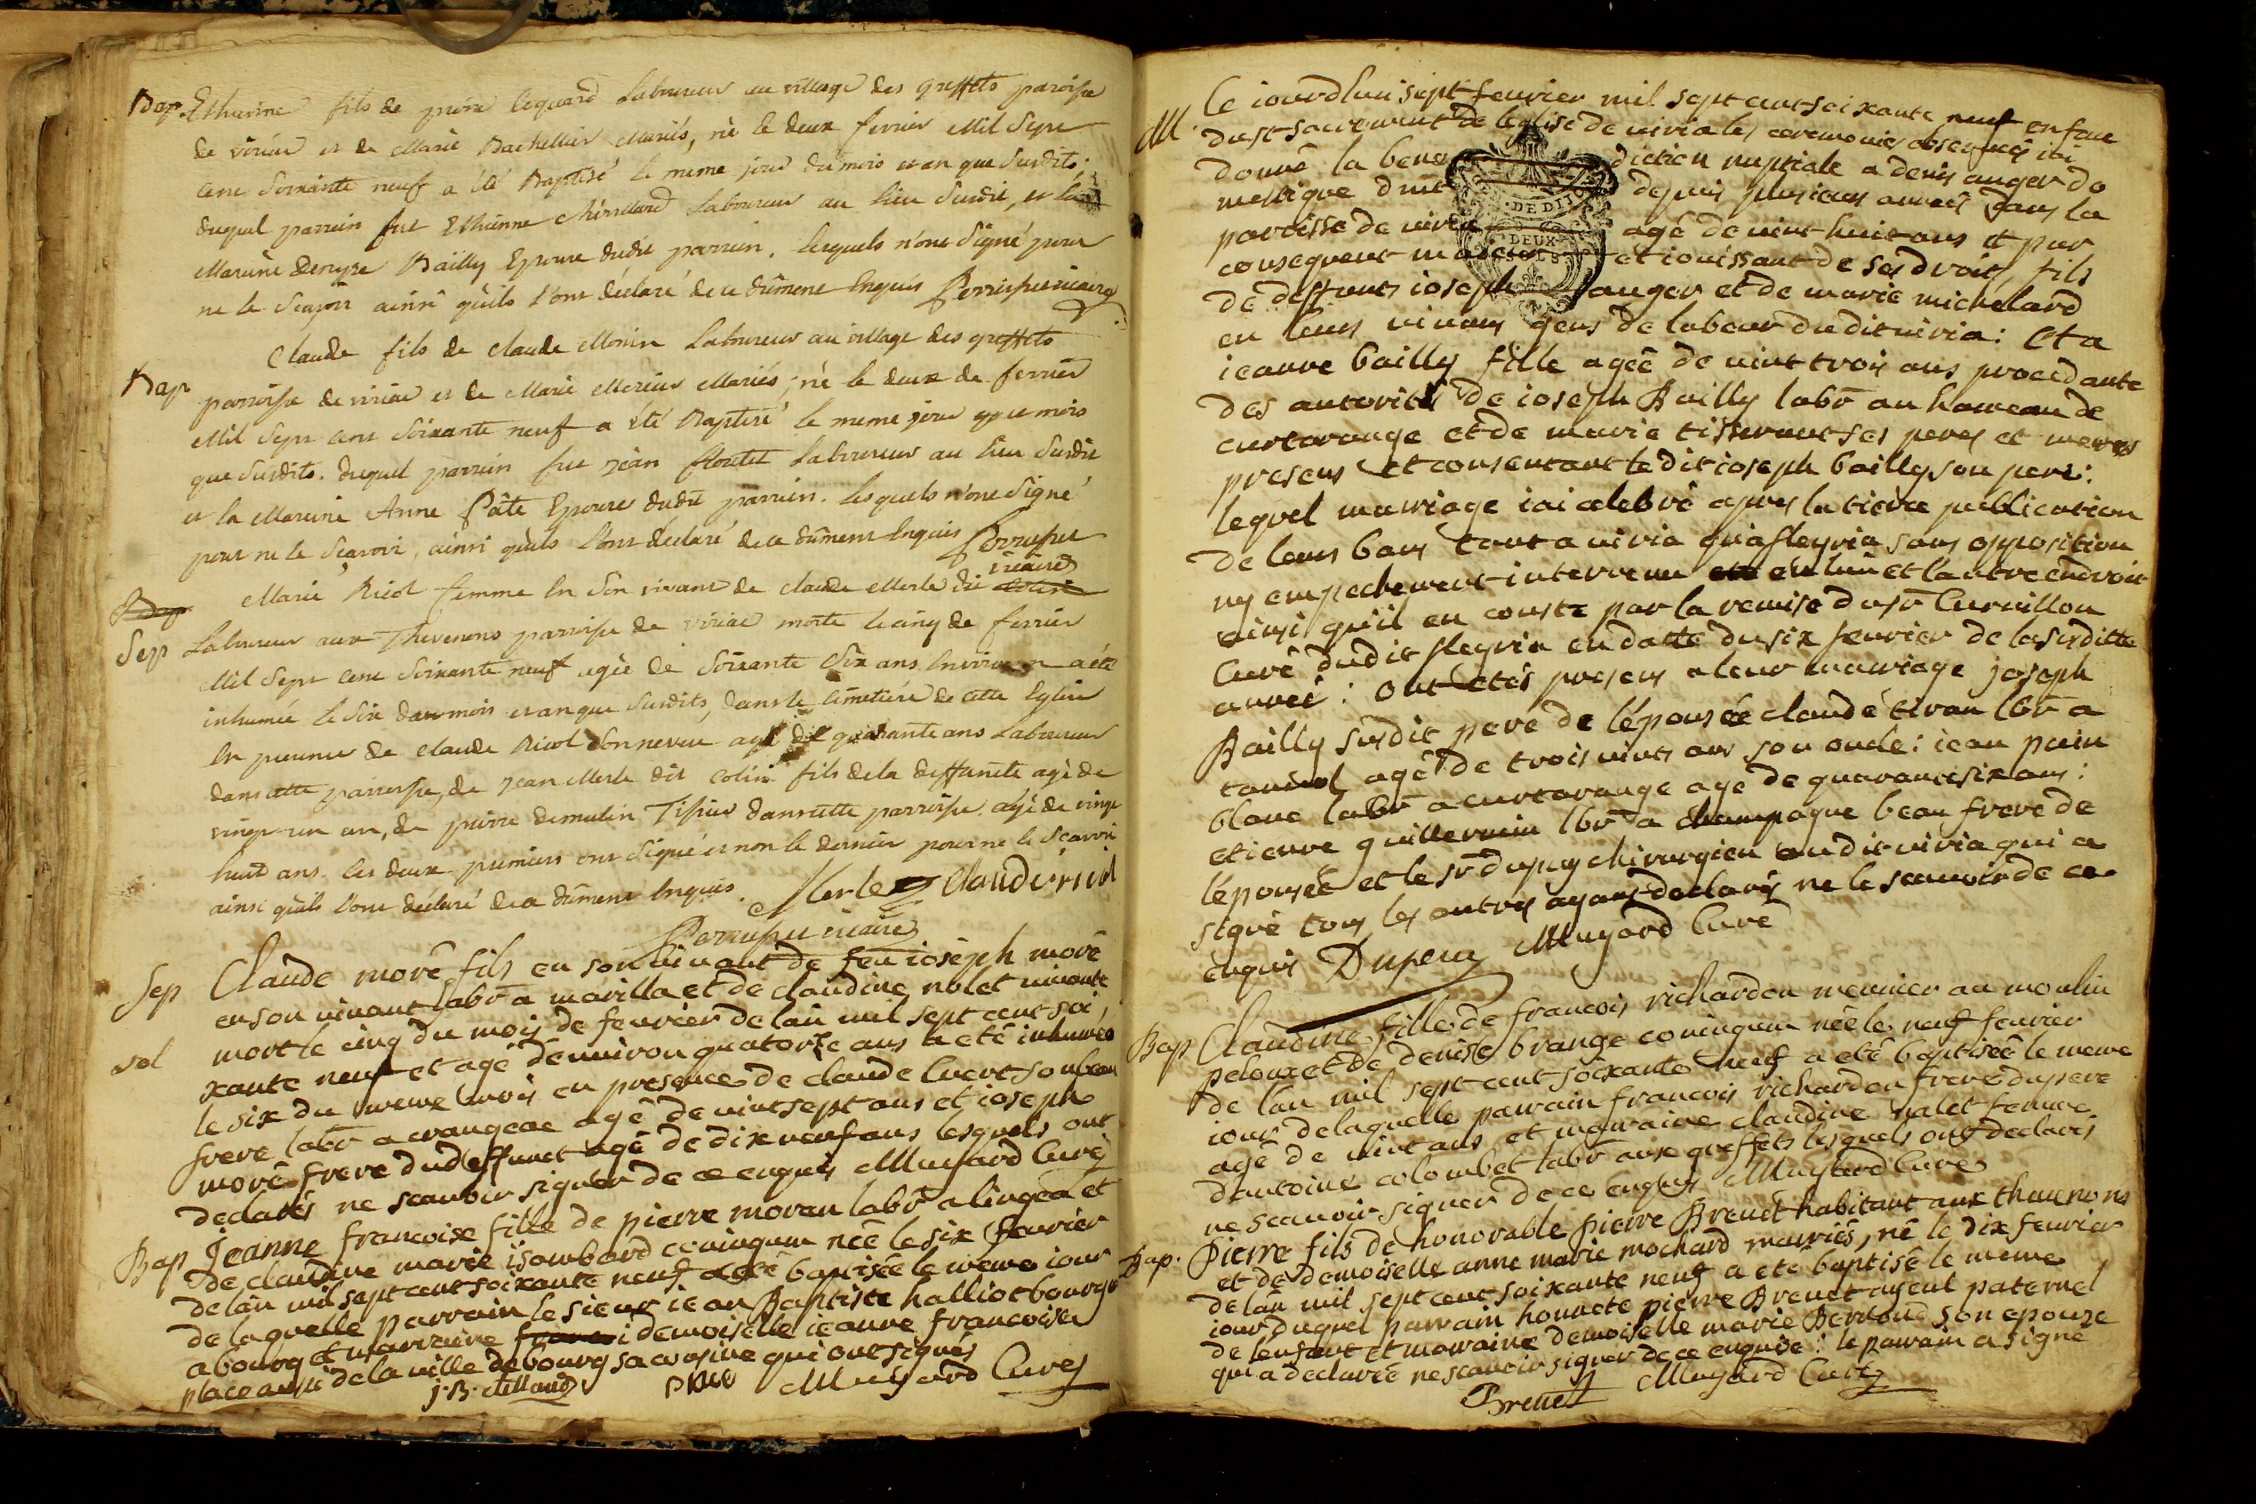 Bap. Ethienne fils de pierre lequard Laboureur au village des greffets paroisse
de viriac et de Marie Bachellier Mariés, né le deux fevrier Mil Sept
Cent Soixante neuf a été Baptisé le meme jour du mois et an que Susdits.
duquel parrein fut Ethienne Laboureur au lieu Susdit, et la
Mareine denyse Bailly Epouse dudit parrein. lesquels n'ont Signé pour
ne le Sçavoir ainsi qu'ils l'ont déclaré de ce dûment Enquis vicaire
Bap Claude fils de claude Monin Laboureur au village des greffets
parroisse de viriac et de Marie Mercier Mariés, né le deux de fevrier
Mil Sept cent Soixante neuf a été Baptisé le meme jour mois
que Susdits. duquel parrein fut jean floutet Laboureur au lieu Susdit
et la Mareine Anne Pâte Epouse dudit parrein. lesquels n'ont Signé
pour ne le Sçavoir, ainsi qu'ils l'ont déclaré de ce dûment Enquis
vicaire
Sep Marie Ricol femme En Son vivant de claude Merle dit
Laboureur aux Thevenons parroisse de viriac morte le cinq de fevrier
Mil Sept Cent Soixante neuf agée de Soixante Six ans Environ a été
inhumée le Six du mois et an que Susdits, dans le Cimetiére de cette Eglise
En presence de Claude Ricol Son neveu agé de quarante ans Laboureur
dans cette parroisse, de jean Merle dit Colin fils de la deffuncte agé de
vingt un an, de pierre demulin Tissier dans cette parroisse agé de vingt
huit ans. les deux premiers ont Signé et non le dernier pour ne le Sçavoir
ainsi qu'ils l'ont déclaré de ce dûment Enquis. Merle Claude ricol
vicaire
Sep Claude morê fils en son vivant de feu ioseph morê
en son vivant labr a marilla et de claudine noblet vivante
sol mort le cinq du mois de fevrier de lan mil sept cent soi,
xante neuf et agé denviron quatorze ans a eté inhumeé
le six du meme mois en presence de claude Cuert son beau
frere labr a crangeac agé de vint sept ans et ioseph
morê frere dudeffunct agé de dix neuf ans lesquels ont
declarés ne scauoir signer de ce enquis Muyard Curé
Bap Jeanne francoise fille de pierre moran labr a lingea et
de claudine marie isombard coniugum née le six fevrier
de lan mil sept cent soixante neuf a eté baptisée le meme iour
de laquelle parrain le sieur iean Baptiste halliot bourgs
a bourg et marraine demoiselle ieanne francoise
place aussi de la ville de bourg sa cousine qui ont signés
Muyard Curé
M. Ce iourdhui sept feurier mil sept cent soixante neuf en face
du st sacrement de leglise de viria les ceremonies obseruées iai
donné la bene diction nuptiale a denis auger do
mestique dmt depuis plusieurs années dans la
paroisse de viria agé de vint huit ans et par
consequent maieur et iouissant de ses droits, fils
de deffunts ioseph auger et de marie michelard
en leurs vivans gens de labeur dudit viria: Et a
ieanne bailly fille ageê de vint trois ans procedante
des autorités de ioseph Bailly labr au hameau de
curtarange et de marie tisserant ses peres et meres
presens et consentant le dit ioseph bailly son pere:
lequel mariage iai celebré apres la tierce publication
de leurs bans tant a viria qua fleyria sans opposition
ny empechement intervenu en lun et lautre endroit
ainsi quil en conste par la remise du sr Curuillon
Curé dudit fleyria en datte du six feurier de la susditte
année: ont etés presens a leur mariage joseph
Bailly susdit pere de lépouseé claude tiran lbr a
taniol agé de trois vints ans son oncle: iean pain
blanc labr a curtarange agé de quarante six ans:
etienne guillermin lbr a champagne beau frere de
lépouseé et le sr dupuy chirurgien audit viria qui a
signé tous les autres ayans declarés ne le scauoir de ce
enquis Dupuy Muyard Curé
Bap Claudine fille de francois richardon meunier au moulin
pelouxet de denise brange coniugum née le neuf feurier
de lan mil sept cent soixante neuf a eté baptisée le meme
iour de laquelle parrain francois richardon frere du pere
agé de vint ans et marraine claudine nalet femme
dantoine colombet labr aux greffets lesquels ont declarés
ne scauoir signer de ce enquis Muyard Curé
Bap. Pierre fils de honorable pierre Breuet habitant aux thevenons
et de demoiselle anne marie mochard mariés, né le dix feurier
de lan mil sept cent soixante neuf a eté baptisé le meme
iour duquel parrain honnete pierre Breuet ayeul paternel
de lenfant et marraine demoiselle marie son epouse
qui a declareé ne scauoir signer de ce enquise: le parrain a signé
Breuet Muyard Curé
DE DIJON
DEUX
SOLS